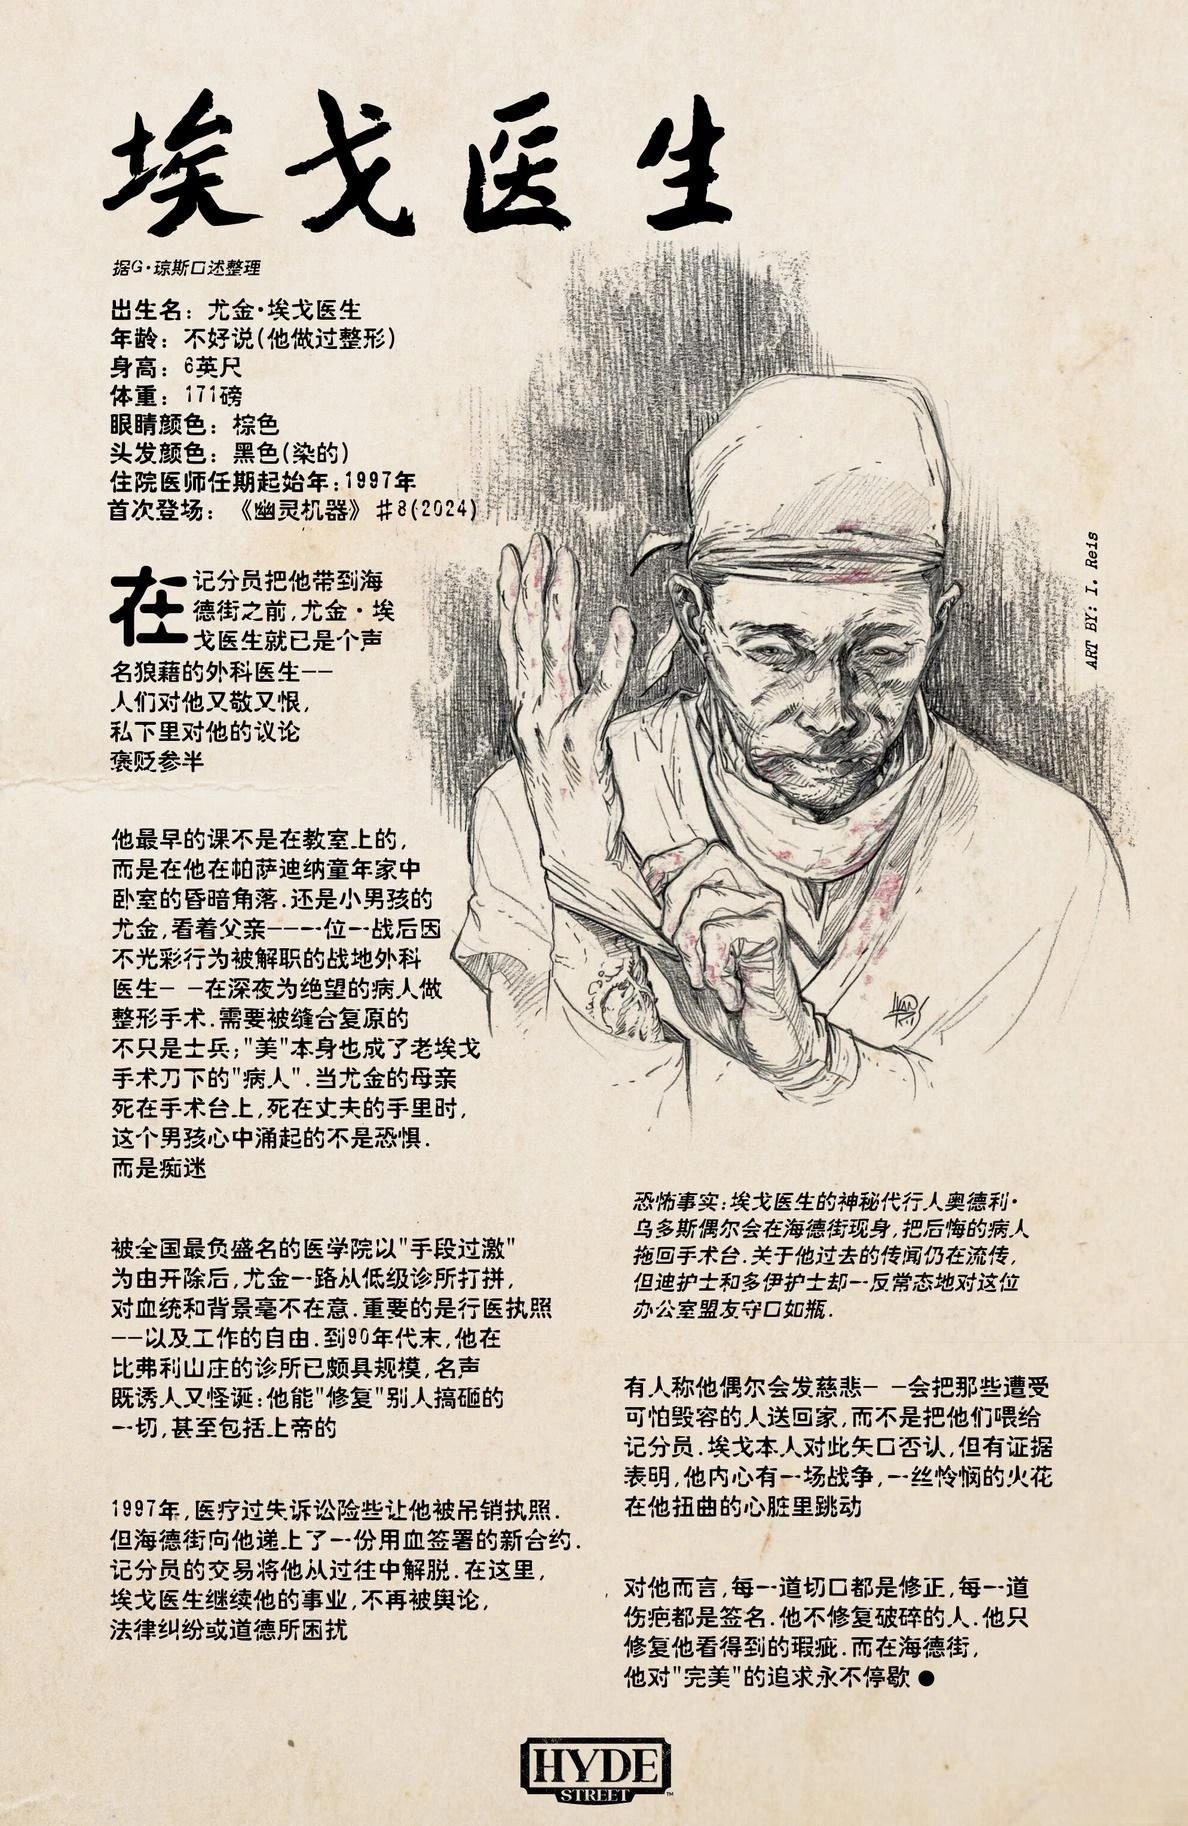 埃戈医生
据G·琼斯口述整理
出生名：尤金·埃戈医生
年龄：不好说(他做过整形)
身高：6英尺
体重：171磅
眼睛颜色：棕色
头发颜色：黑色(染的)
住院医师任期起始年：1997年
首次登场：《幽灵机器》#8(2024)
在记分员把他带到海
德街之前,尤金·埃
戈医生就已是个声
名狼藉的外科医生——
人们对他又敬又恨,
私下里对他的议论
褒贬参半
他最早的课不是在教室上的,
而是在他在帕萨迪纳童年家中
卧室的昏暗角落.还是小男孩的
尤金,看着父亲——一位一战后因
不光彩行为被解职的战地外科
医生— —在深夜为绝望的病人做
整形手术.需要被缝合复原的
不只是士兵;"美"本身也成了老埃戈
手术刀下的"病人".当尤金的母亲
死在手术台上,死在丈夫的手里时,
这个男孩心中涌起的不是恐惧.
而是痴迷
被全国最负盛名的医学院以"手段过激"
为由开除后,尤金一路从低级诊所打拼,
对血统和背景毫不在意.重要的是行医执照
——以及工作的自由.到90年代末,他在
比弗利山庄的诊所已颇具规模,名声
既诱人又怪诞:他能"修复"别人搞砸的
一切,甚至包括上帝的
1997年,医疗过失诉讼险些让他被吊销执照.
但海德街向他递上了一份用血签署的新合约.
记分员的交易将他从过往中解脱.在这里,
埃戈医生继续他的事业,不再被舆论,
法律纠纷或道德所困扰
ART BY: I. Reis
恐怖事实:埃戈医生的神秘代行人奥德利·
乌多斯偶尔会在海德街现身,把后悔的病人
拖回手术台.关于他过去的传闻仍在流传,
但迪护士和多伊护士却一反常态地对这位
办公室盟友守口如瓶.
有人称他偶尔会发慈悲— —会把那些遭受
可怕毁容的人送回家,而不是把他们喂给
记分员.埃戈本人对此矢口否认,但有证据
表明,他内心有一场战争,一丝怜悯的火花
在他扭曲的心脏里跳动
对他而言,每一道切口都是修正,每一道
伤疤都是签名.他不修复破碎的人.他只
修复他看得到的瑕疵.而在海德街,
他对"完美"的追求永不停歇●
HYDE
STREET™